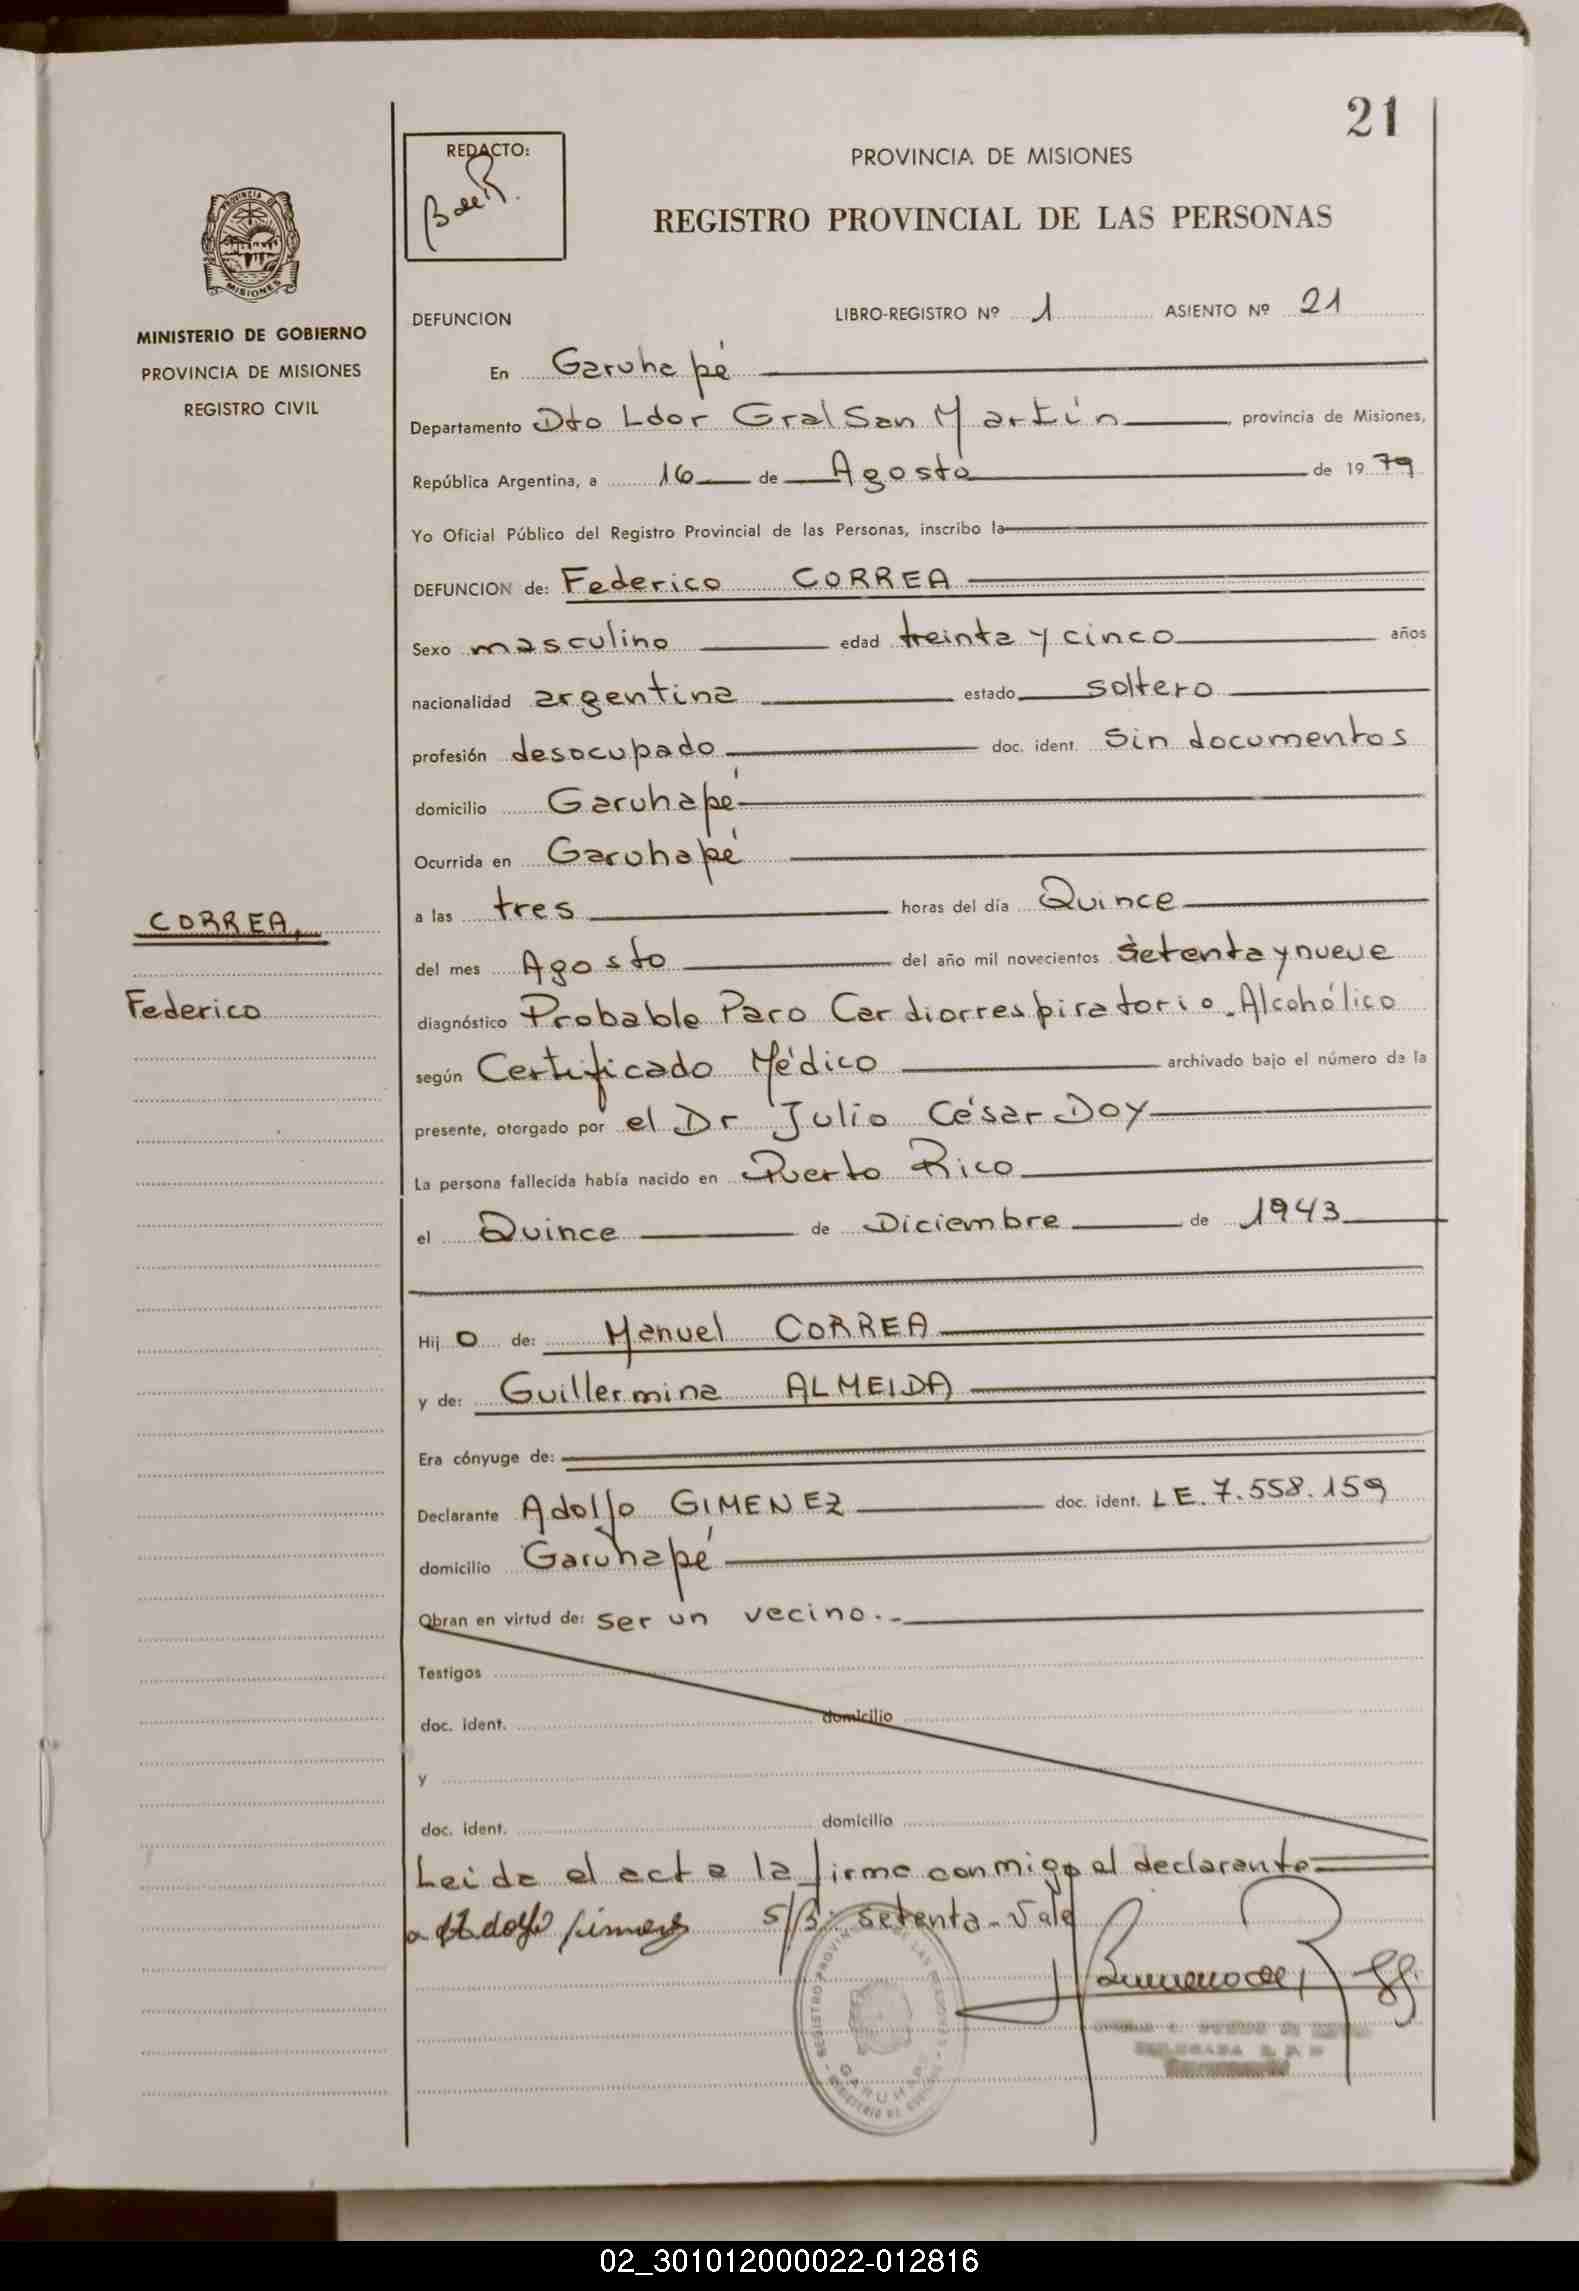 21
REDACTO:
B de R.
PROVINCIA DE MISIONES
REGISTRO PROVINCIAL DE LAS PERSONAS
PROVINCIA DE
MISIONES
MINISTERIO DE GOBIERNO
PROVINCIA DE MISIONES
REGISTRO CIVIL
DEFUNCION LIBRO-REGISTRO Nº 1 ASIENTO Nº 21
En Garuhapé
Departamento Dto Ldor Gral San Martín provincia de Misiones,
República Argentina, a 16 de Agosto de 1979
Yo Oficial Público del Registro Provincial de las Personas, inscribo la
DEFUNCION de: Federico CORREA
Sexo masculino edad treinta y cinco años
nacionalidad argentina estado soltero
profesión desocupado doc. ident. Sin documentos
domicilio Garuhapé
Ocurrida en Garuhapé
a las tres horas del día Quince
CORREA,
del mes Agosto del año mil novecientos setenta y nueve
Federico
diagnóstico Probable Paro Cardiorrespiratorio. Alcohólico
según Certificado Médico archivado bajo el número de la
presente, otorgado por el Dr Julio César Doy
La persona fallecida había nacido en Puerto Rico
el Quince de Diciembre de 1943
Hij o de: Manuel CORREA
y de: Guillermina ALMEIDA
Era cónyuge de:
Declarante Adolfo GIMENEZ doc. ident. L E. 7.558.159
domicilio Garuhapé
Obran en virtud de: ser un vecino.-
Testigos
doc. ident. domicilio
y
doc. ident. domicilio
Leida el acta la firma conmigo el declarante
S/B: setenta-Vale
REGISTRO PROVINCIAL DE LAS PERSONAS
GARUHAPE
02_301012000022-012816